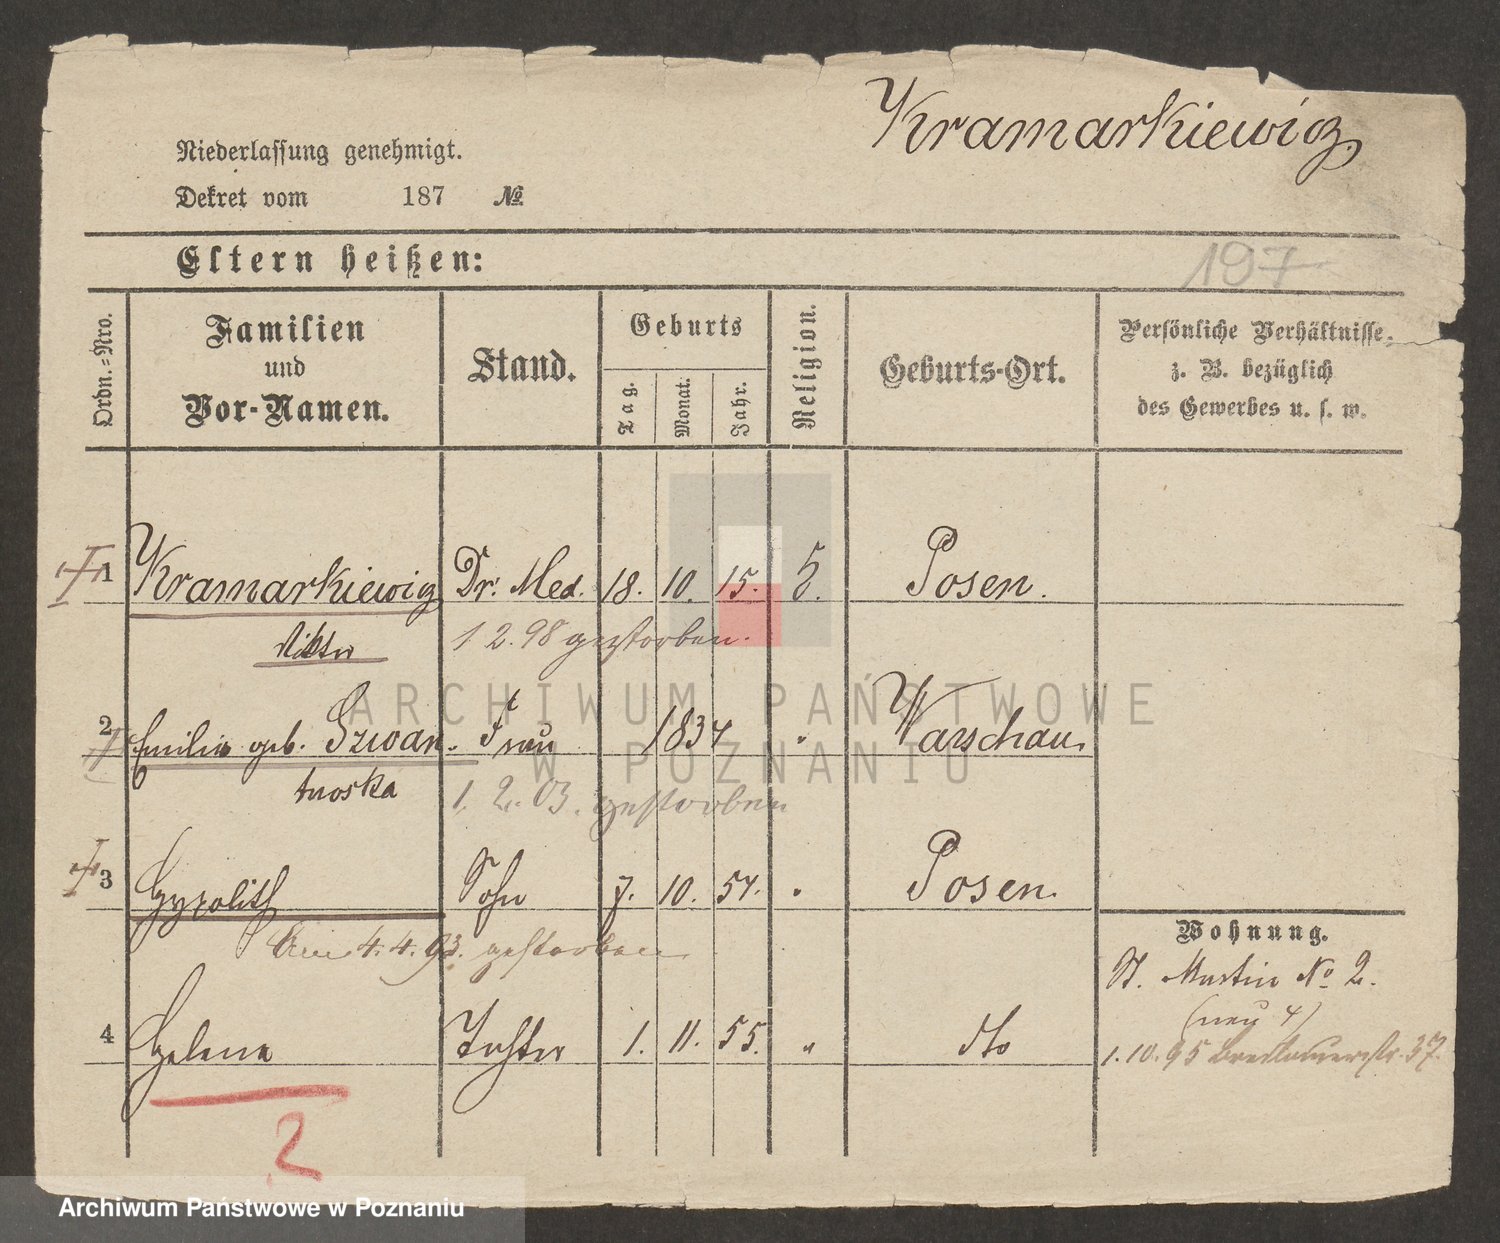 Kramarkiewicz
Niederlassung genehmigt.
Dekret vom 187 №
197
Eltern heißen:
Ordn.-Nro.
Familien und Vor-Namen.
Stand.
Geburts
Tag. Monat. Jahr.
Religion.
Geburts-Ort.
Persönliche Verhältnisse, z. B. bezüglich des Gewerbes u. s. w.
1 Kramarkiewicz Dr. Med. 18. 10. 15. Posen.
1 2. 98 gestorben.
2 Emilie geb. Szwan- Frau 1834 " Warschau.
towska
1. 2. 03. gestorben
3 Hypolith Sohn 7. 10. 54. " Posen.
Am 4. 4. 93. gestorben
Wohnung.
St. Martin No 2.
(neu 4)
4 Helena Tochter 1. 11. 55. " dto
1. 10. 95 Breslauerstr. 37.
2
ARCHIWUM PAŃSTWOWE
W POZNANIU
Archiwum Państwowe w Poznaniu